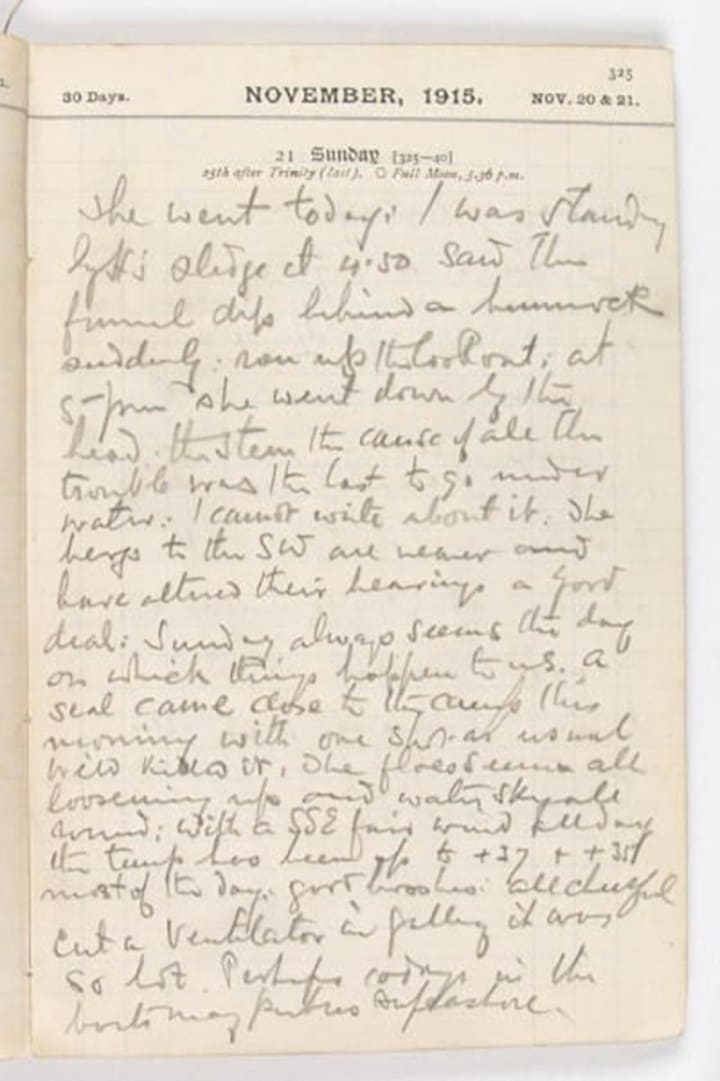 325
30 Days. NOVEMBER, 1915. NOV. 20 & 21.
21 Sunday [325—40]
25th after Trinity (last). ○ Full Moon, 5.36 p.m.
She went today: I was standing
by sledge at 4.50 saw the
funnel dip behind a hummock
suddenly: ran up the lookout; at
5 pm she went down by the
head. the stern the cause of all the
trouble was the last to go under
water. I cannot write about it. The
bergs to the SW are nearer and
have altered their bearings a good
deal: Sunday always seems the day
on which things happen to us. A
seal came close to the camp this
morning with one as usual
Wild killed it. The floes seem all
loosening up and water sky all
round; with a SSE fair wind all day
the temp has been up to +37 + +35
most of the day. good hooshes: all cheerful
cut a Ventilator in galley it was
so hot. Perhaps in the
boats may put us safe ashore.